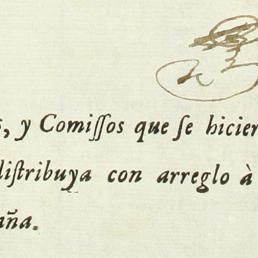 , y Comiſſos que ſe hicier
diſtribuya con arreglo à
aña.